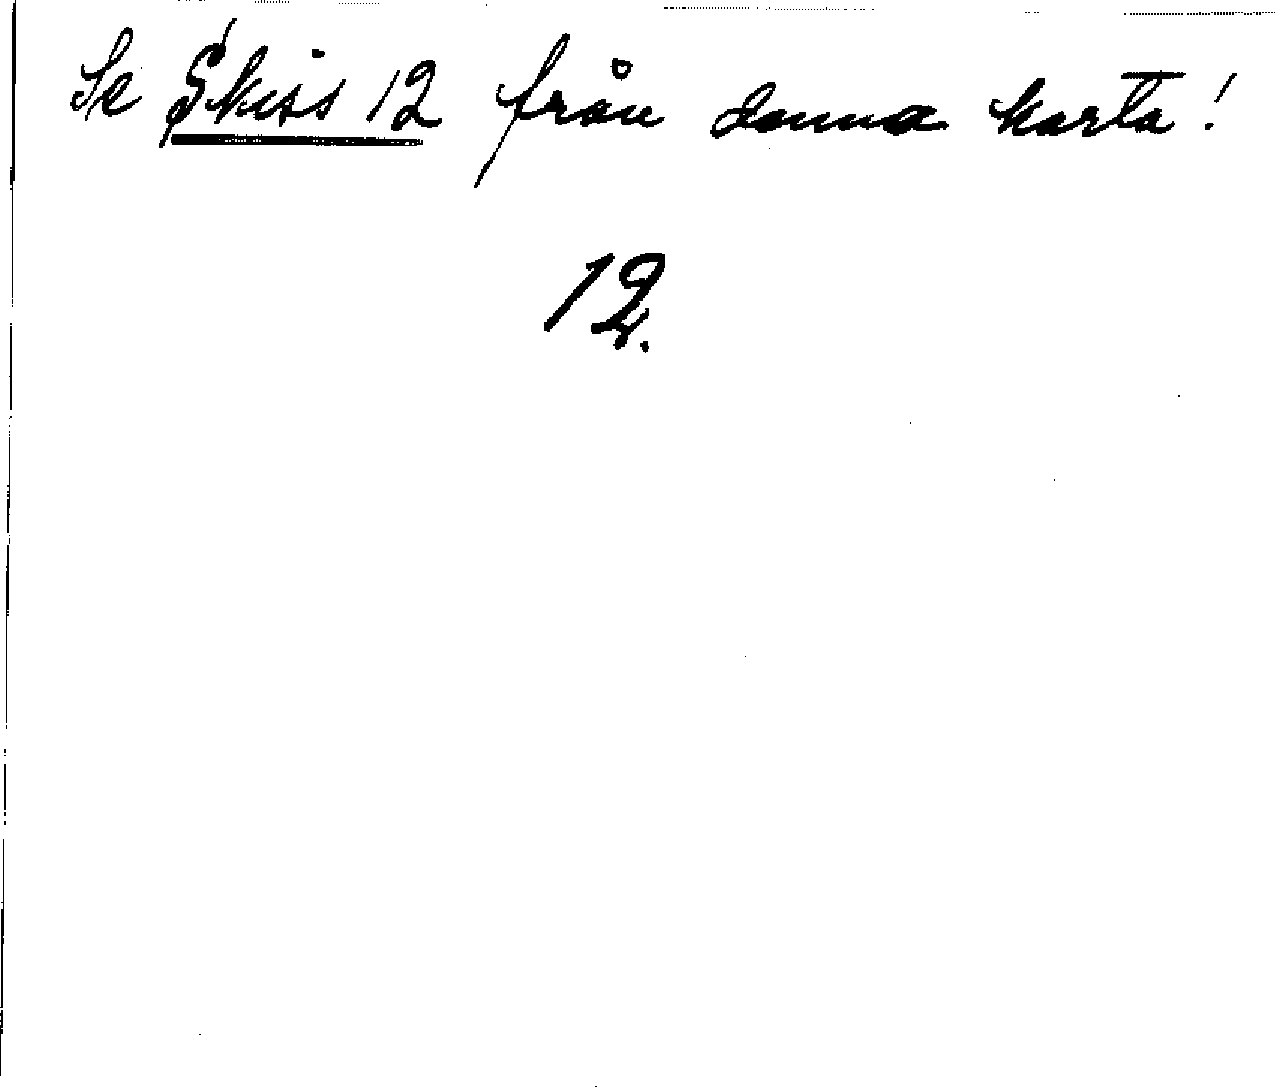 Se Skiss 12 från denna karta!
12.